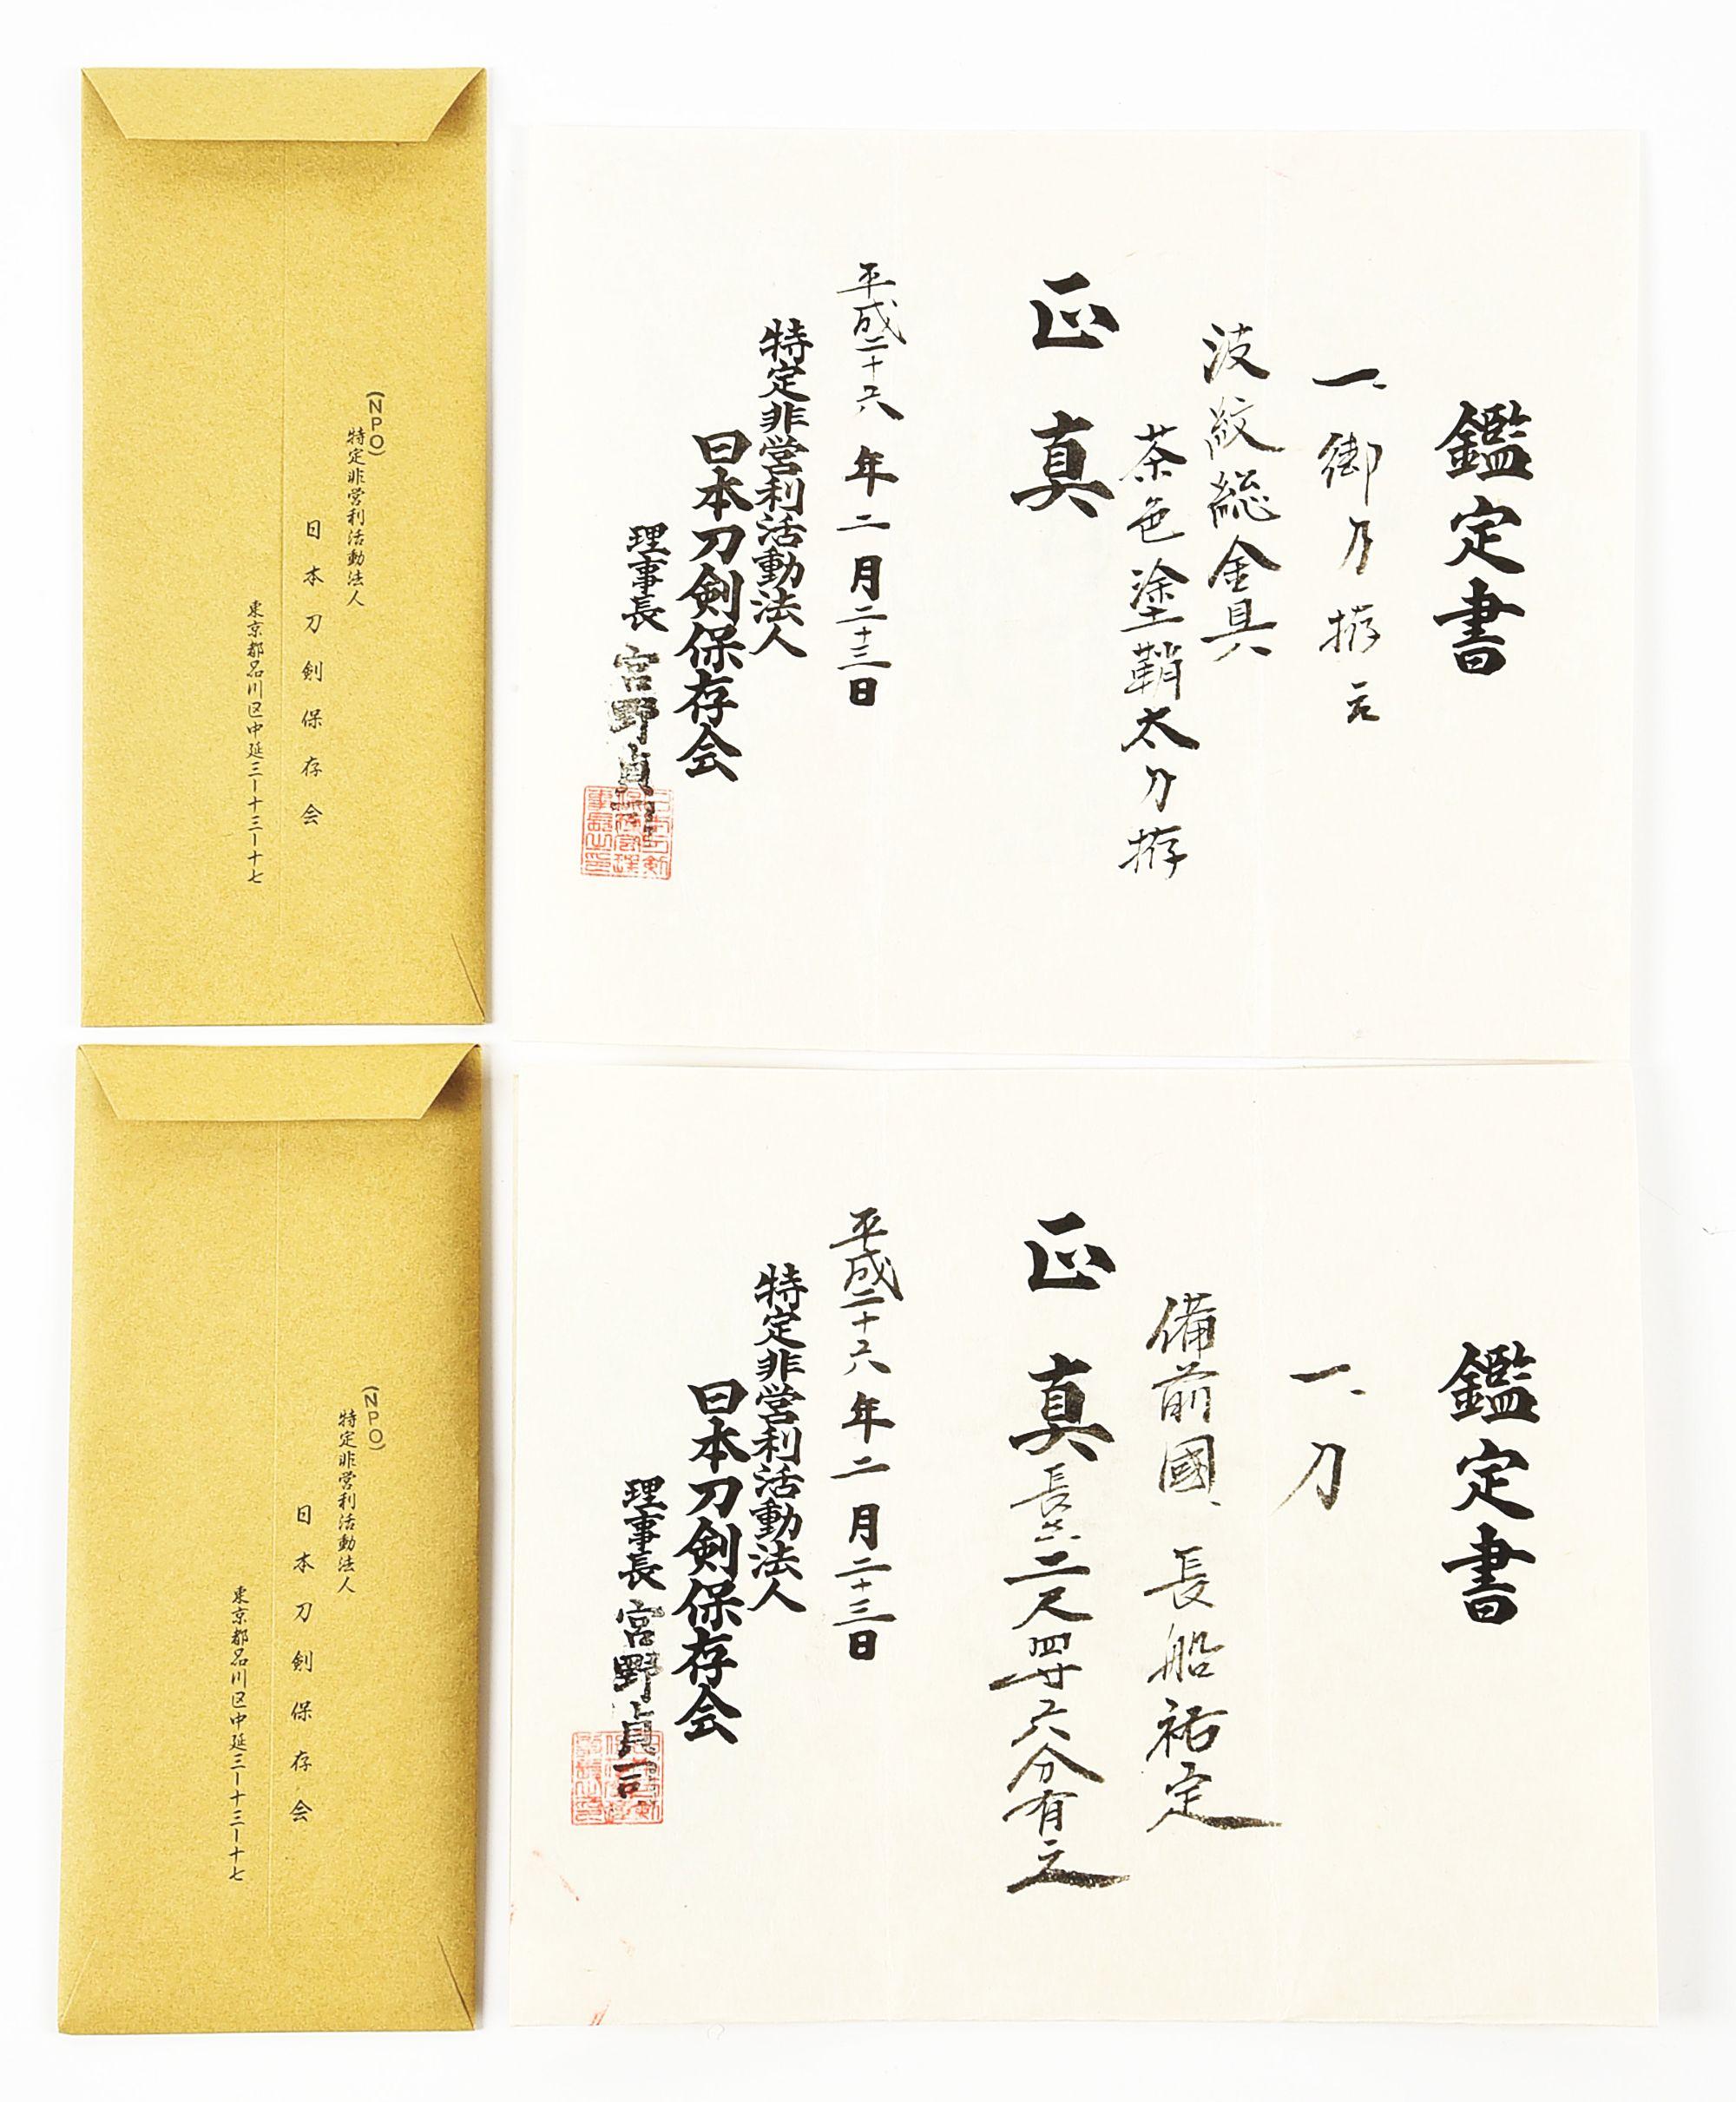 鑑定書
一、御刀拵
波紋総金具
茶色塗鞘太刀拵
正真
平成二十六年二月二十三日
特定非営利活動法人
日本刀剣保存会
理事長 宮野貞司
(NPO)
特定非営利活動法人
日本刀剣保存会
東京都品川区中延三ー十三ー十七
鑑定書
一、刀
備前國、長船祐定
正真
長さ二尺四寸六分有之
平成二十六年二月二十三日
特定非営利活動法人
日本刀剣保存会
理事長 宮野貞司
(NPO)
特定非営利活動法人
日本刀剣保存会
東京都品川区中延三ー十三ー十七